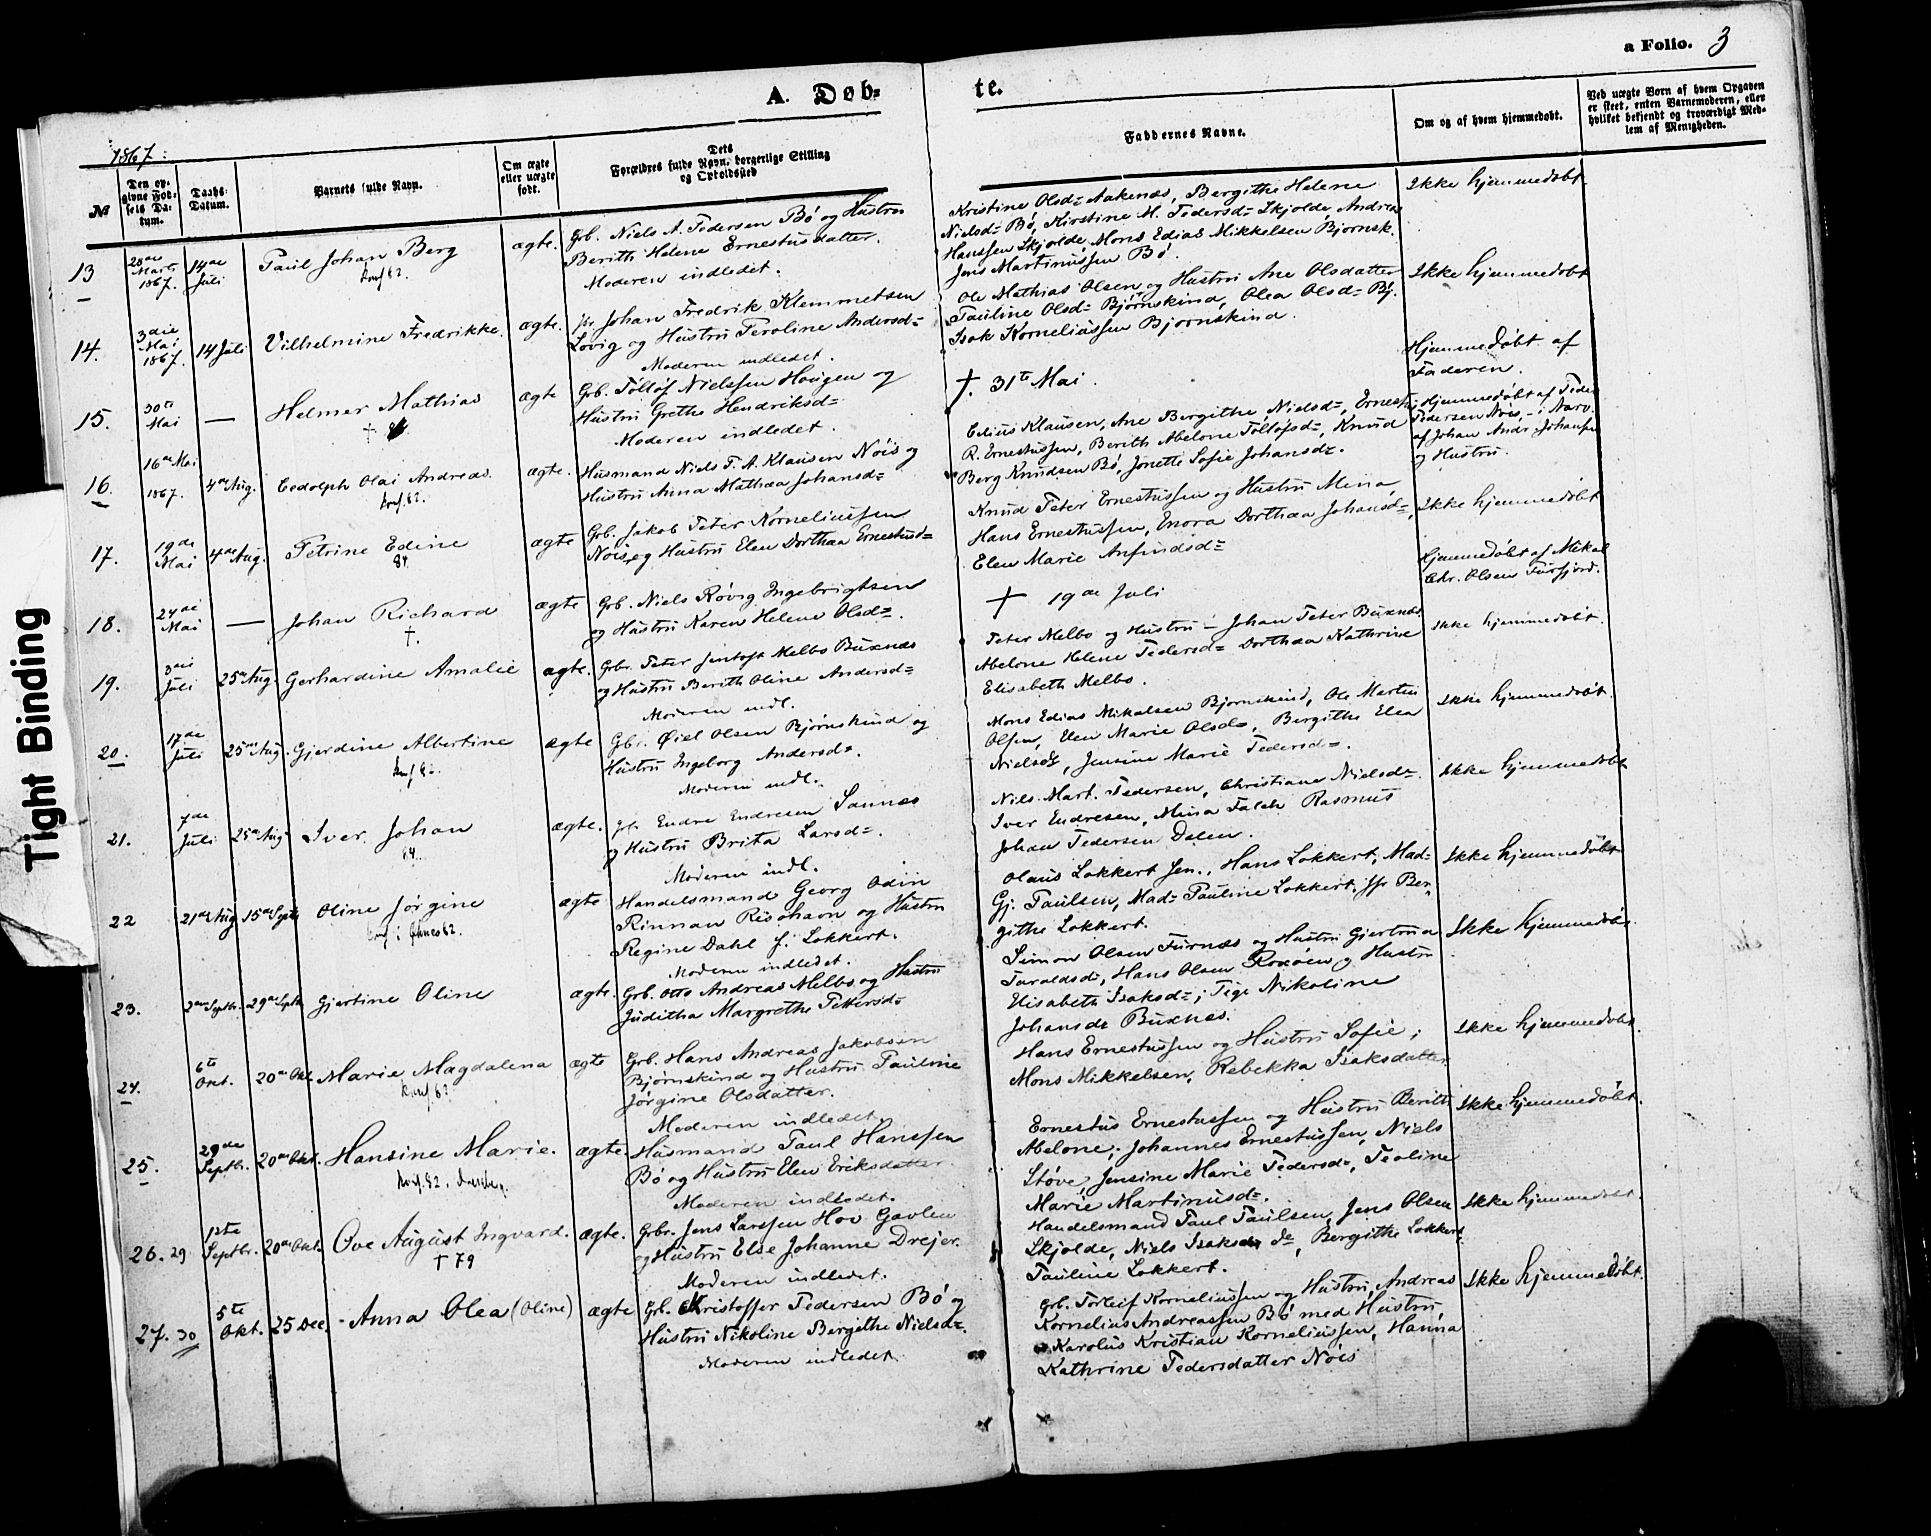 a Folio. 3
A. Døb-
te.
1867:
№
Den opgivne Fødsels Datum.
Daabs-Datum.
Barnets fulde Navn.
Om ægte eller uægte født.
Dets Forældres fulde Navn, borgerlige Stilling og Opholdssted
Faddernes Navne.
Om og af hvem hjemmedøbt.
Ved uægte Børn af hvem Opgaven er skeet, enten Barnemoderen, eller hvilket bekjendt og troværdigt Medlem af Menigheden.
13
28de Marts 1867.
14de Juli
Paul Johan Berg
Konf. 82.
ægte.
Grb. Niels A. Pedersen Bø og Hustru
Berith Helene Ernestusdatter.
Moderen indledet.
Kristine Olsd= Aakenæs, Bergithe Helene
Nielsd= Bø, Kirstine M. Pedersd= Skjolde, Andreas
Hanssen Skjolde, Mons Edias Mikkelsen Bjørnsk.
Jens Martinussen Bø.
Ikke hjemmedøbt.
14.
3die Mai 1867.
14 Juli
Vilhelmine Fredrikke.
ægte.
Johan Fredrik Klemmetsen
Lovig og Hustru Peroline Andersd=
Moderen indledet.
Ole Mathias Olsen og Hustru Ane Olsdatter
Pauline Olsd= Bjørnskind, Olea Olsd= Bj.
Isak Korneliussen Bjørnskind.
Ikke hjemmedøbt
15.
30te Mai
—
Helmer Mathias
†
ægte
Grb. Tollof Nielssen Haugen og
Hustru Grethe Hendriksd=
Moderen indledet.
†. 31te Mai.
Hjemmedøbt af
Faderen.
16.
16de Mai 1867.
4de Aug.
Eedolph Olai Andreas.
Konf. 82.
ægte.
Husmand Niels P. A. Klausen Nøis og
Hustru Anna Mathea Johansd=
Edius Klausen, Ane Bergithe Nielsd=, Ernest
R. Ernestussen, Berith Abelone Tollofsd=, Knud
Berg Knudsen Bø, Jonette Sofie Johansd=.
Hjemmedøbt af Peder
Pedersen Nøis,
af Johan Andr. Johansen
og Hustru.
17.
19de Mai
4de Aug.
Petrine Edine
84.
ægte
Grb. Jakob Peter Korneliussen
Nøis, og Hustru Elen Dorthea Ernestusd=
Knud Peter Ernestussen og Hustru Mena,
Hans Ernestussen, Enora Dorthæa Johansd=,
Elen Marie Arfindsd=
Ikke hjemmedøbt
18.
24de Mai
—
Johan Richard
†.
ægte
Grb. Niels Røvig Ingebrigtsen
og Hustru Karen Helene Olsd=.
† 19de Juli
Hjemmedøbt af Mikal
Chr. Olsen Furfjord.
19.
3die Juli
25de Aug.
Gerhardine Amalie
ægte.
Grbr. Peter Jentoft Melbo Buxnæs
og Hustru Berith Oline Andersd=
Moderen indl.
Peter Melbo og Hustru - Johan Peter Buxnæs
Abelone Helene Pedersd= Dorthæa Kathrine
Elisabeth Melbo.
Ikke hjemmedøbt.
20.
17de Juli
25de Aug.
Gjerdine Albertine
Konf. 82.
ægte
Gbr. Øiel Olsen Bjørnskind og
Hustru Ingeborg Andersd=.
Moderen indl.
Mons Edias Mikalsen Bjørnskind, Ole Martin
Olsen, Elen Marie Olsd=, Bergithe Elea
Nielsd=, Jensine Marie Pedersd=.
Ikke hjemmedøbt.
21.
7de Juli
25de Aug
Iver Johan
84.
ægte.
Endre Endresen Sannæs
og Hustru Brita Larsd=.
Moderen indl.
Nils Mart. Pedersen, Christiane Nielsd=.
Iver Endresen, Mina Falch Rasmus
Johan Pedersen Dalen.
Ikke hjemmedøbt
22
21de Aug
15de Septb
Oline Jørgine
ægte
Handelsmand Georg Odin
Rinnan Risøhavn og Hustru
Regine Dahl f. Lokkert.
Moderen indledet.
Olaus Lokkert sen., Hans Lokkert, Mad=
Gj. Paulsen, Mad= Pauline Lokkert, Jfr Ber-
githe Lokkert.
Ikke hjemmedøbt
23.
2den Septbr.
29de Septb
Gjertine Oline
ægte.
Grb. Otto Andreas Melbo og Hustru
Juditha Margrethe Pettersd=
Simon Olsen Furnæs og Hustru Gjertrud
Taraldsd=, Hans Olsen Roxøen og Hustru
Elisabeth Isaksd=; Pige Nikoline
Johansd= Buxnæs.
Ikke hjemmedøbt.
24.
6te Okt.
20de Okt
Marie Magdalena
Konf. 82
ægte
Grb. Hans Andreas Jakobsen
Bjørnskind og Hustru Pauline
Jørgine Olsdatter.
Moderen indledet.
Hans Ernestussen og Hustru Sofie;
Mons Mikkelsen, Rebekka Isaksdatter
Ikke hjemmedøbt.
25.
29de Septbr.
20de Okt.
Hansine Marie.
Konf. 82.
ægte.
Husmand Paul Hanssen
Bø og Hustru Elen Eriksdatter
Moderen indledet.
Ernestus Ernestussen og Hustru Berith
Abelone; Johannes Ernestussen, Niels
Støve, Jensine Marie Pedersd=, Peoline
Marie Martinusd=.
Ikke hjemmedøbt.
26. 29
12te Septbr.
20de Okt.
Ove August Ingvard.
† 79
ægte.
Grbr. Jens Larssen Hov Gavlen
og Hustru Else Johanne Drejer.
Moderen indledet.
Handelsmand Paul Paulsen, Jens Olsen
Skjolde, Niels Isaksen do, Bergithe Lokkert
Pauline Lokkert.
Ikke hjemmedøbt.
27. 30
5te Okt.
25 Dec.
Anna Olea (Oline)
ægte
Grb. Kristoffer Pedersen Bø og
Hustru Nikoline Bergithe Nielsd=.
Moderen indledet.
Grb. Torleif Korneliussen og Hustru, Andreas
Kornelius Andreassen Bø med Hustru,
Karolus Kristian Korneliussen, Hanna
Kathrine Pedersdatter Nøis
Ikke hjemmedøbt.
Tight Binding